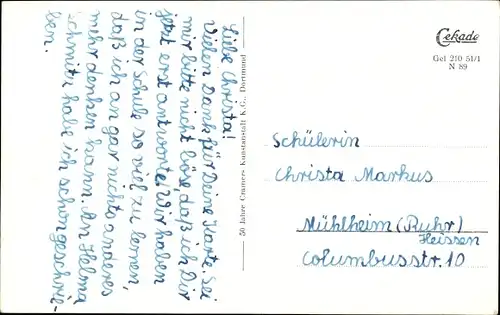 Liebe Christa!
Vielen Dank für Deine Karte. Sei
mir bitte nicht böse, daß ich Dir
jetzt erst antworte. Wir haben
in der Schule so viel zu lernen,
daß ich an gar nichts anderes
mehr denken kann. An Helma
Schmitz habe ich schon geschrie-
ben.
50 Jahre Cramers Kunstanstalt K.G., Dortmund
Cekade
Gel 210 51/1
N 89
Schülerin
Christa Markus
Mühlheim (Ruhr)
Heissen
Columbusstr. 10